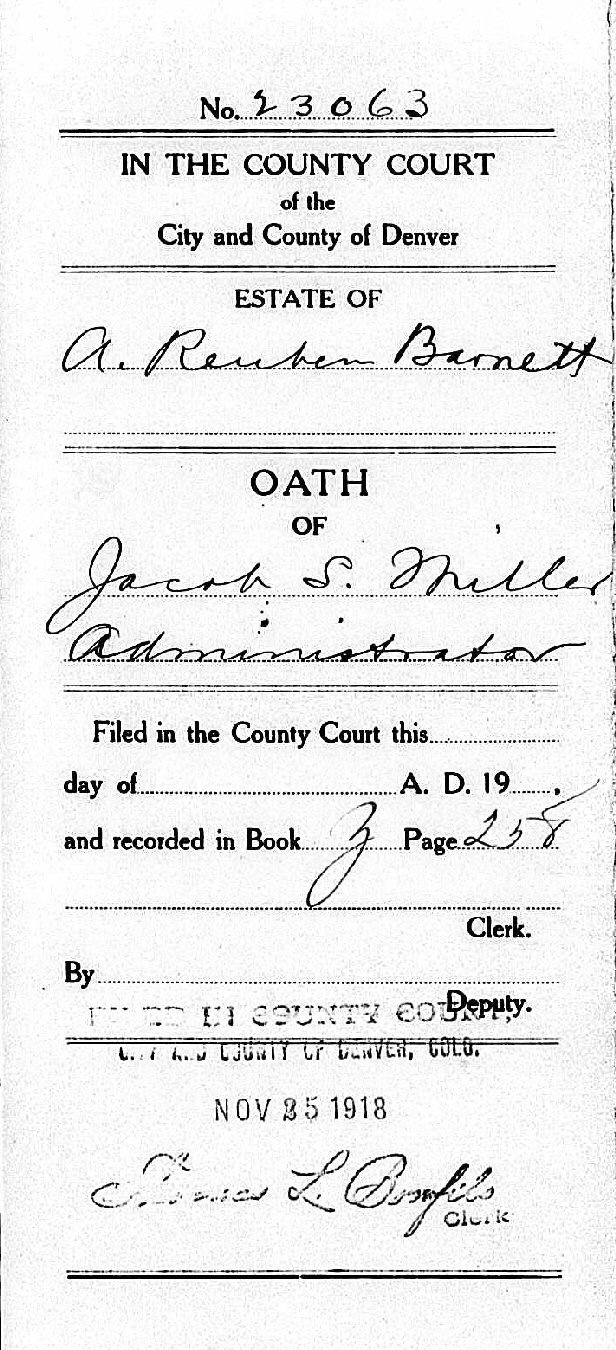 No. 23063
IN THE COUNTY COURT
of the
City and County of Denver
ESTATE OF
A. Reuben Barnett
OATH
OF
Jacob S. Miller
Administrator
Filed in the County Court this
day of A. D. 19 ,
and recorded in Book Z Page 258
Clerk.
By
Deputy.
FILED IN COUNTY COURT,
CITY AND COUNTY OF DENVER, COLO.
NOV 25 1918
Thomas L. Bonfils
Clerk